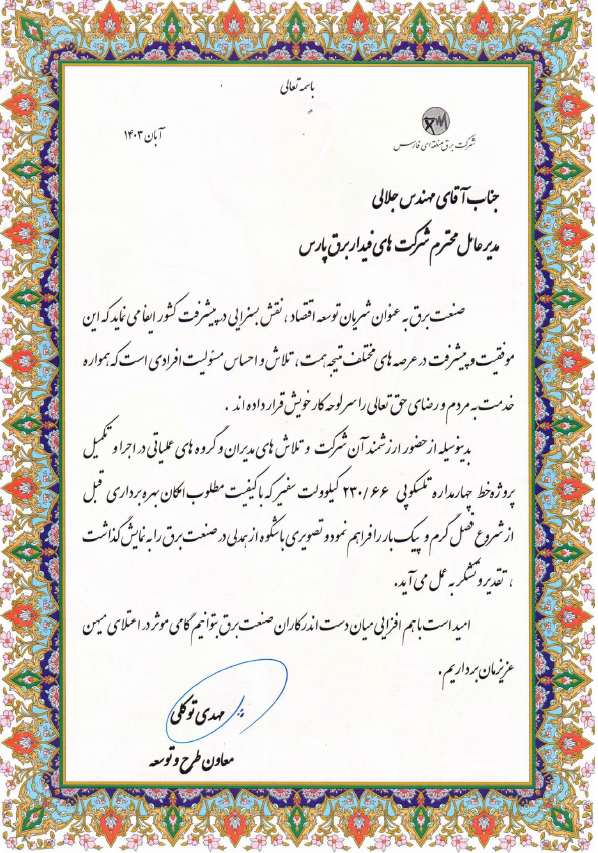 باسمه تعالی
شرکت برق منطقه‌ای فارس
آبان ۱۴۰۳
جناب آقای مهندس جلالی
مدیرعامل محترم شرکت های فیدار برق پارس
صنعت برق به عنوان شریان توسعه اقتصاد، نقش بسزایی در پیشرفت کشور ایفا می نماید که این
موفقیت و پیشرفت در عرصه های مختلف نتیجه همت، تلاش و احساس مسئولیت افرادی است که همواره
خدمت به مردم و رضای حق تعالی را سرلوحه کار خویش قرار داده اند .
بدینوسیله از حضور ارزشمند آن شرکت و تلاش های مدیران و گروه های عملیاتی در اجرا و تکمیل
پروژه خط چهارمداره تلسکوپی ۲۳۰/۶۶ کیلوولت سفیر که با کیفیت مطلوب امکان بهره برداری قبل
از شروع فصل گرم و پیک بار را فراهم نمود و تصویری باشکوه از همدلی در صنعت برق را به نمایش گذاشت
، تقدیر و تشکر به عمل می آید.
امید است با هم افزایی میان دست اندرکاران صنعت برق بتوانیم گامی موثر در اعتلای میهن
عزیزمان برداریم .
مهدی توکلی
معاون طرح و توسعه